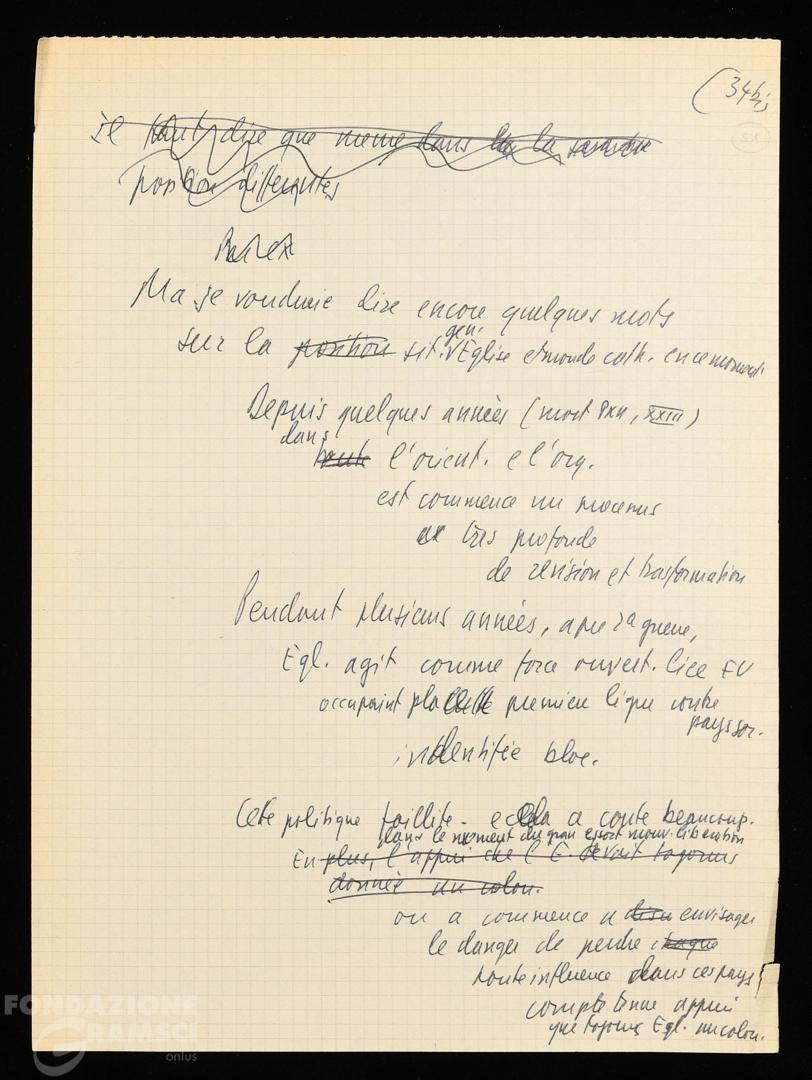 (34bis
il faut dire que meme dans la la
position differentes
Ma je voudraie dire encore quelques mots
sur la position sit. gen. l'Eglise et monde cath. en ce moment
Depuis quelques années (mort PXII, XXIII)
dans
toute l'orient. e l'org.
est commence un processus
tres profonde
de revision et trasformation
Pendant plusieurs années, apre 2a guerre,
Egl. agit comme force ouvert. liee EU
occupaint place premiere ligne contre
pays soc.
indentifiée bloc.
Cete politique faillite. cela a coute beaucoup.
dans le moment du gran essort mouv. liberation
En plus, l'appui che l'E. devait tojours
donnée au colon.
on a commence a envisager
le danger de perdre chaque
toute influence dans ces pays
compte tenue appui
que tojours Egl. au colon.
FONDAZIONE
GRAMSCI
onlus